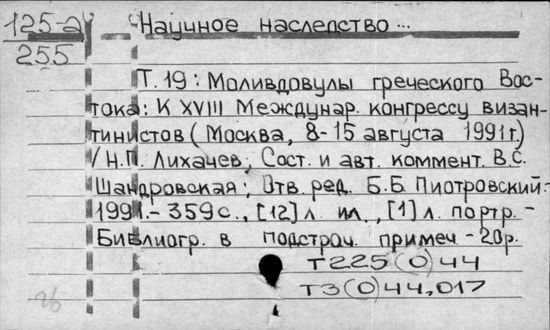 125-а
255
Научное наследство...
Т. 19: Моливдовулы греческого Вос-
тока: К XVIII Междунар. конгрессу визан-
тинистов (Москва, 8-15 августа 1991г)
/Н.П. Лихачев; Сост. и авт. коммент. В.С.
Шандровская; Отв. ред. Б.Б. Пиотровский.-
1991.- 359с., [12] л. ил., [1] л. портр.-
Библиогр. в подстрач. примеч - 20р.
Т225(0)44
Т3(0)44,017
2б